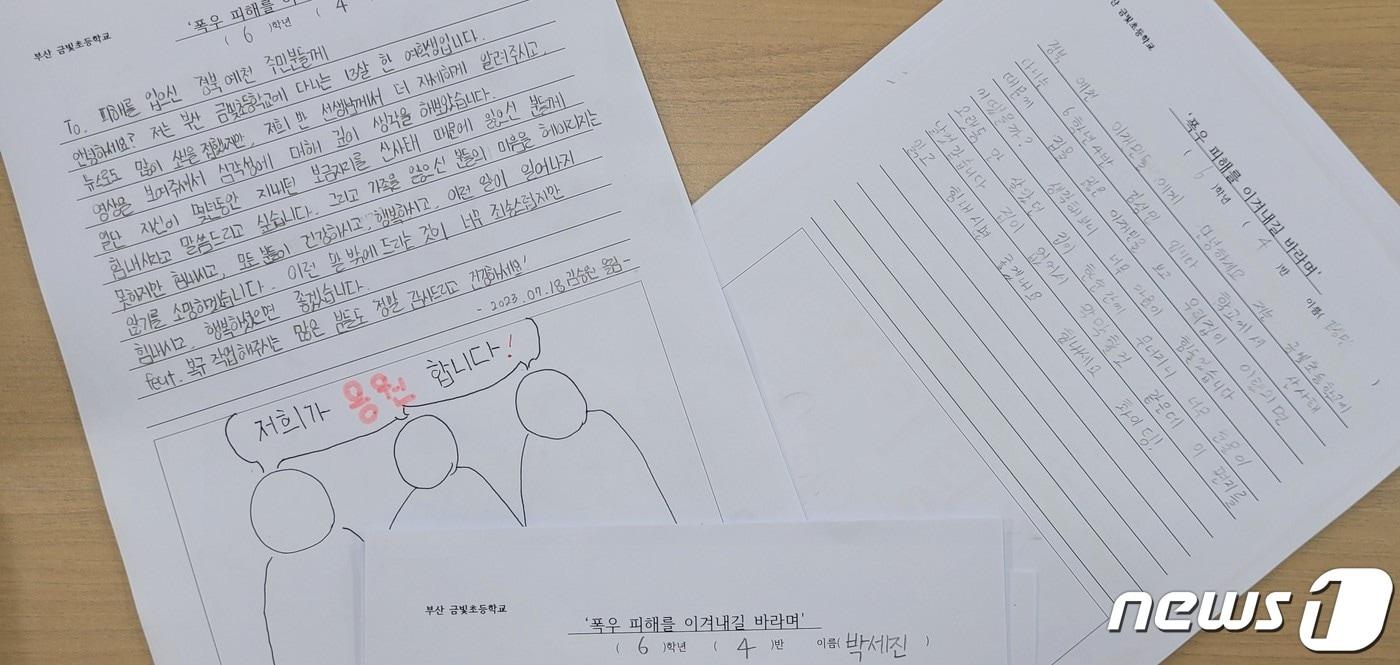 부산 금빛초등학교
'폭우 피해를 이
( 6 )학년 ( 4
To. 피해를 입으신 경북 예천 주민분들께
안녕하세요? 저는 부산 금빛초등학교에 다니는 13살 한 여학생입니다.
뉴스로도 많이 소식을 접했지만, 저희 반 선생님께서 더 자세하게 알려주시고,
영상을 보여주셔서 심각성에 대하 깊이 생각을 해보았습니다.
일단 자신이 몇년동안 지내던 보금자리를 산사태 때문에 잃으신 분들께
힘내시라고 말씀드리고 싶습니다. 그리고 가족을 잃으신 분들의 마음을 헤아리지는
못하지만 힘내시고, 모든 분들이 건강하시고, 행복하시고, 이런 일이 일어나지
않기를 소망하겠습니다. 이런 말 밖에 드리는 것이 너무 죄송스럽지만
힘내시고, 행복하셨으면 좋겠습니다.
feat. 복구 작업해주시는 많은 분들도 정말 감사드리고 건강하세요'
- 2023.07.18 김승원 올림-
저희가 응원 합니다!
부산 금빛초등학교
'폭우 피해를 이겨내길 바라며'
( 6 )학년 ( 4 )반 이름( )
경북 예천 이재민들에게
안녕하세요 저는 금빛초등학교에
다니는 6학년 4반 입니다 학교에서 산사태
때문에 집을 잃은 이재민을 보고 우리집이 이랬으면
어땠을까? 생각해보니 너무 마음이 힘들었습니다
오랫동안 살았던 집이 한순간에 무너지니 너무 눈물이
날것 같습니다 집이 없어서 막막할것 같은데 이 편지를
읽고 힘내시면 좋겠네요 힘내세요 화이팅!
부산 금빛초등학교
'폭우 피해를 이겨내길 바라며'
( 6 )학년 ( 4 )반 이름( 박세진 )
news1